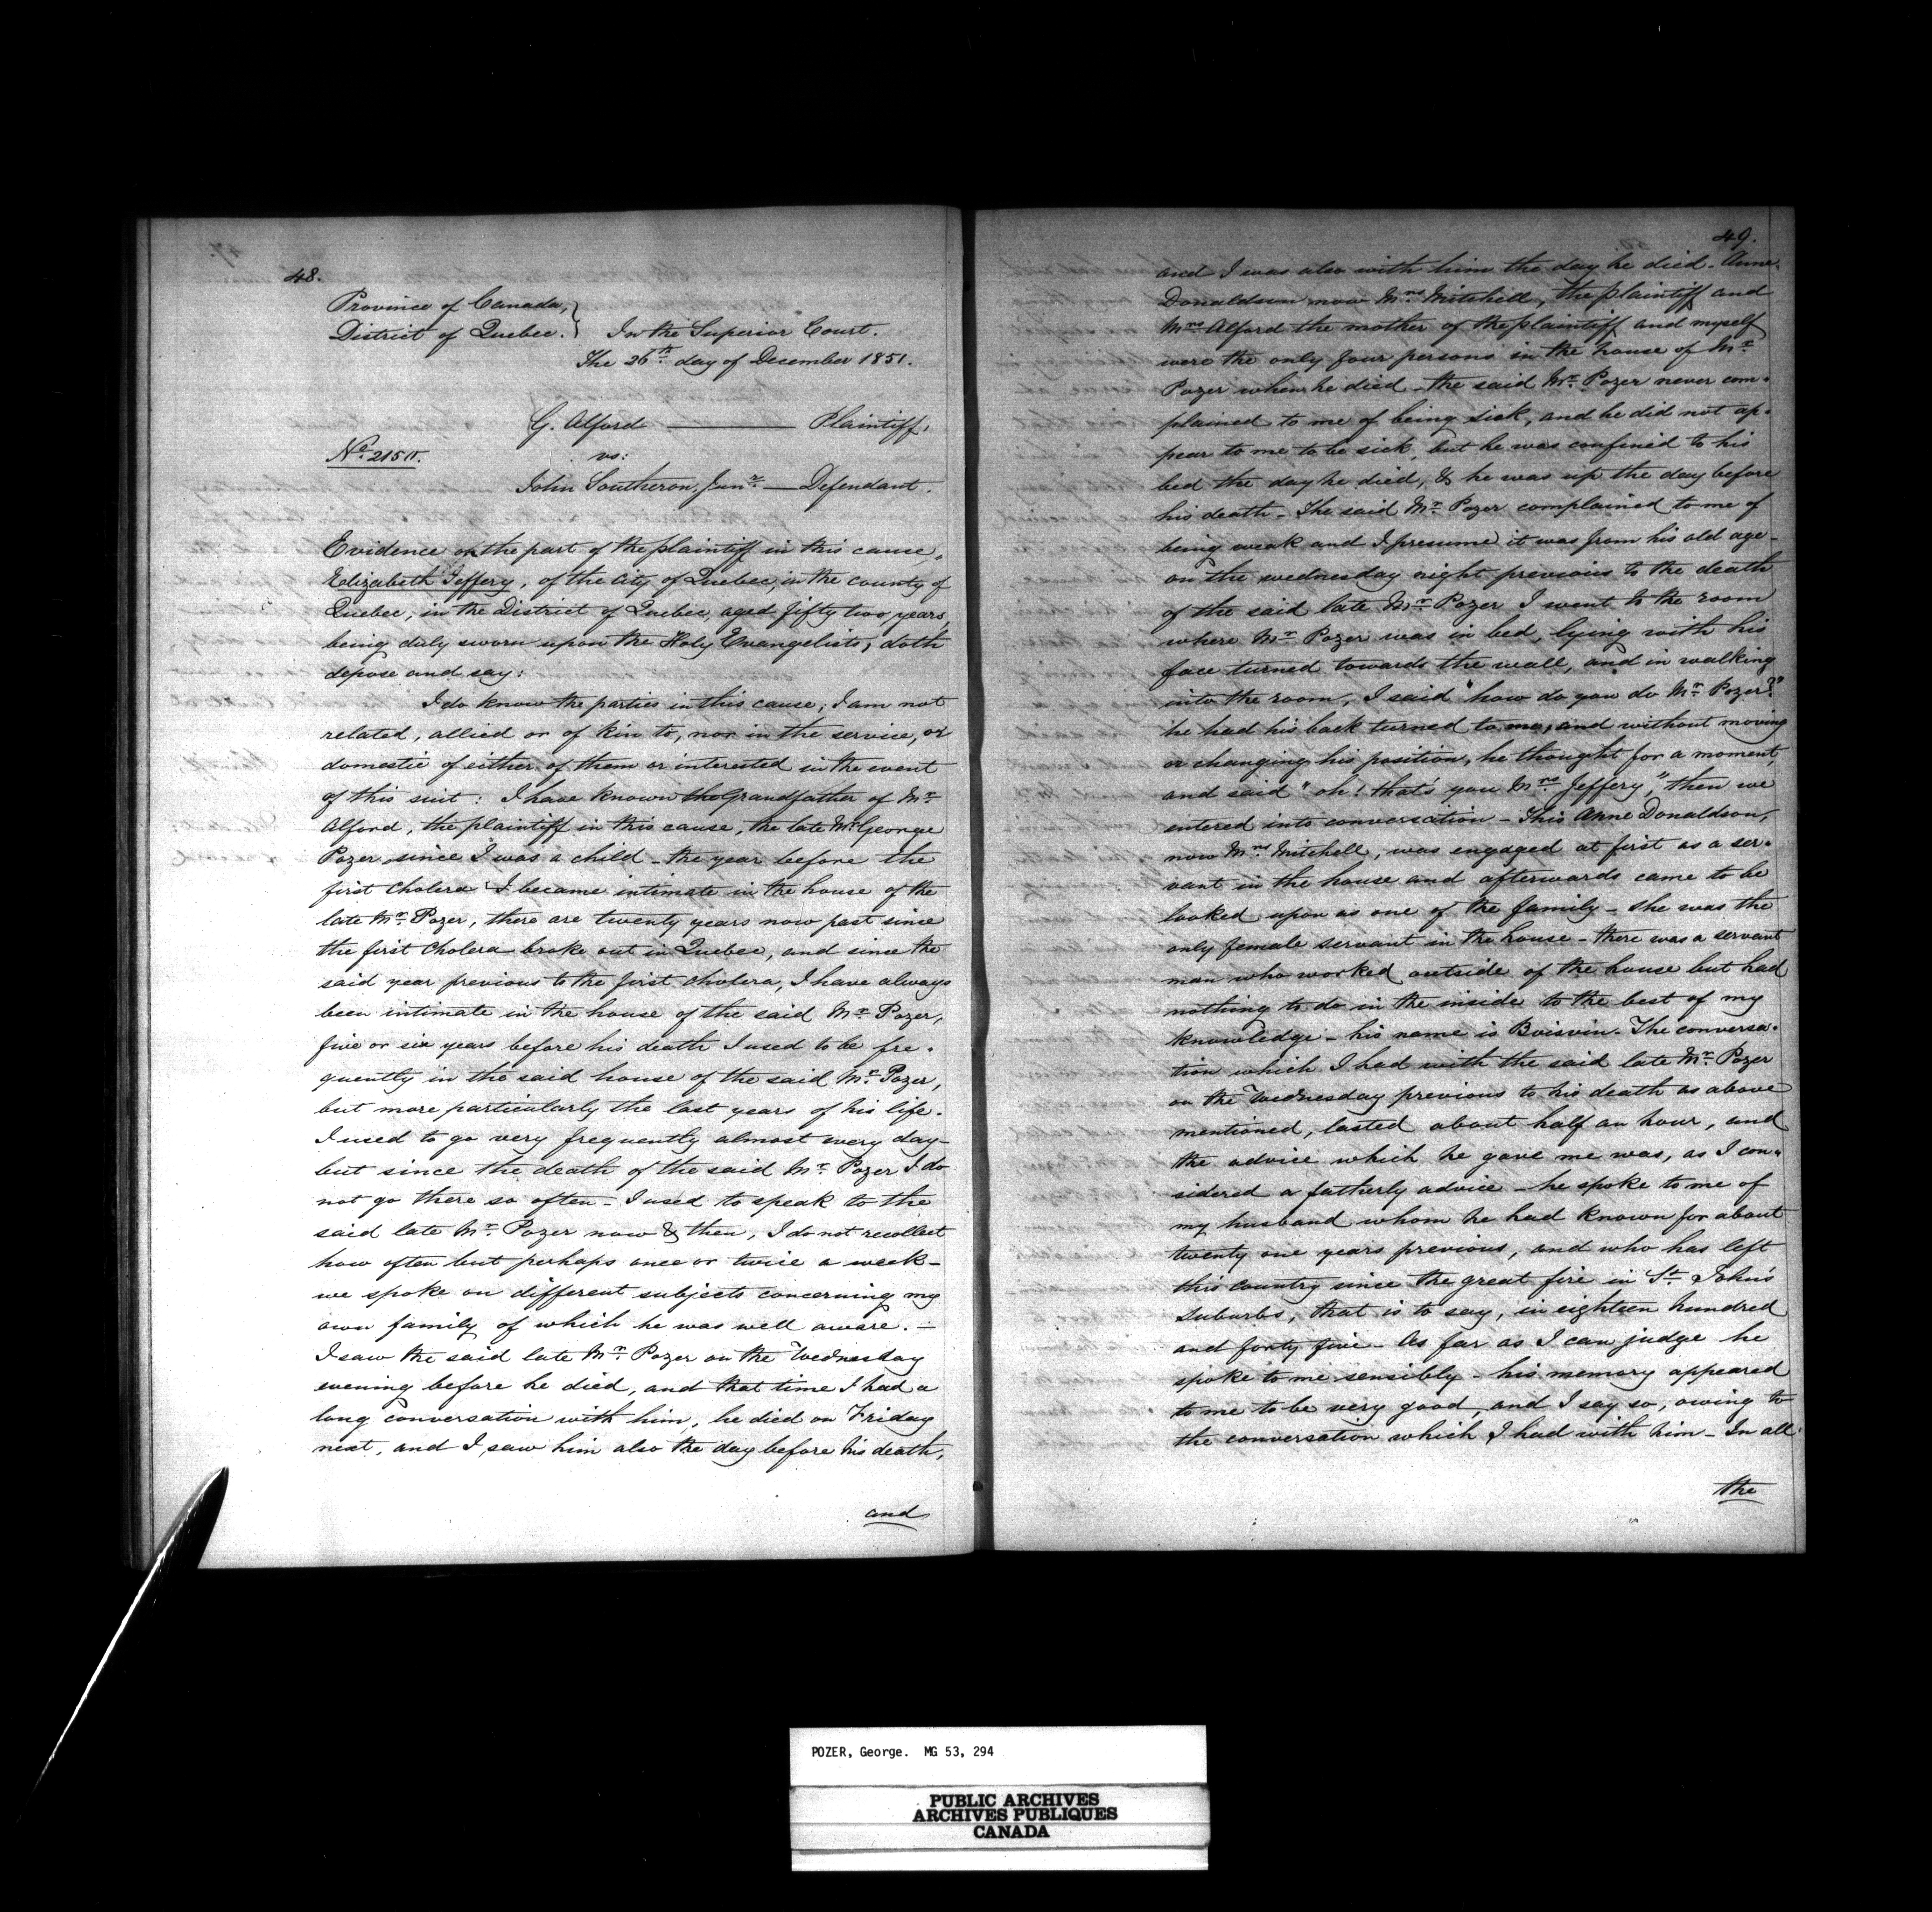 48.
Province of Canada, }
District of Quebec. } In the Superior Court.
The 26th day of December 1851.
G. Alford — Plaintiff,
No. 2150.
vs:
John Southeron, Junr. — Defendant.
Evidence on the part of the plaintiff in this cause,
Elizabeth Jeffery, of the City of Quebec, in the county of
Quebec, in the District of Quebec, aged fifty two years,
being duly sworn upon the Holy Evangelists, doth
depose and say:
I do know the parties in this cause; I am not
related, allied or of kin to, nor in the service, or
domestic of either of them or interested in the event
of this suit: I have known the Grandfather of Mr.
Alford, the plaintiff in this cause, the late Mr. George
Pozer since I was a child - the year before the
first Cholera I became intimate in the house of the
late Mr. Pozer, there are twenty years now past since
the first Cholera broke out in Quebec, and since the
said year previous to the first cholera, I have always
been intimate in the house of the said Mr. Pozer,
five or six years before his death I used to be fre-
quently in the said house of the said Mr. Pozer,
but more particularly the last years of his life.
I used to go very frequently almost every day -
but since the death of the said Mr. Pozer I do
not go there so often - I used to speak to the
said late Mr. Pozer now & then, I do not recollect
how often but perhaps once or twice a week -
we spoke on different subjects concerning my
own family of which he was well aware. -
I saw the said late Mr. Pozer on the Wednesday
evening before he died, and that time I had a
long conversation with him, he died on Friday
next, and I saw him also the day before his death,
and
49.
and I was also with him the day he died. Anne
Donaldson now Mrs. Mitchell, the plaintiff and
Mrs. Alford the mother of the plaintiff and myself
were the only four persons in the house of Mr.
Pozer when he died - the said Mr. Pozer never com-
plained to me of being sick, and he did not ap-
pear to me to be sick, but he was confined to his
bed the day he died, & he was up the day before
his death - The said Mr. Pozer complained to me of
being weak and I presume it was from his old age -
on the wednesday night previous to the death
of the said late Mr. Pozer I went to the room
where Mr. Pozer was in bed, lying with his
face turned towards the wall, and in walking
into the room, I said "how do you do Mr. Pozer?"
he had his back turned to me, and without moving
or changing his position, he thought for a moment,
and said "oh! that's you Mrs. Jeffery," then we
entered into conversation - This Anne Donaldson,
now Mrs. Mitchell, was engaged at first as a ser-
vant in the house and afterwards came to be
looked upon as one of the family - she was the
only female servant in the house - there was a servant
man who worked outside of the house but had
nothing to do in the inside to the best of my
knowledge - his name is Boisvin. The conversa-
tion which I had with the said late Mr. Pozer
on the Wednesday previous to his death as above
mentioned, lasted about half an hour, and
the advice which he gave me was, as I con-
sidered a fatherly advice - he spoke to me of
my husband whom he had known for about
twenty one years previous, and who has left
this country since the great fire in St. John's
Suburbs, that is to say, in eighteen hundred
and forty five - As far as I can judge he
spoke to me sensibly - his memory appeared
to me to be very good, and I say so, owing to
the conversation which I had with him - In all
the
POZER, George. MG 53, 294
PUBLIC ARCHIVES
ARCHIVES PUBLIQUES
CANADA